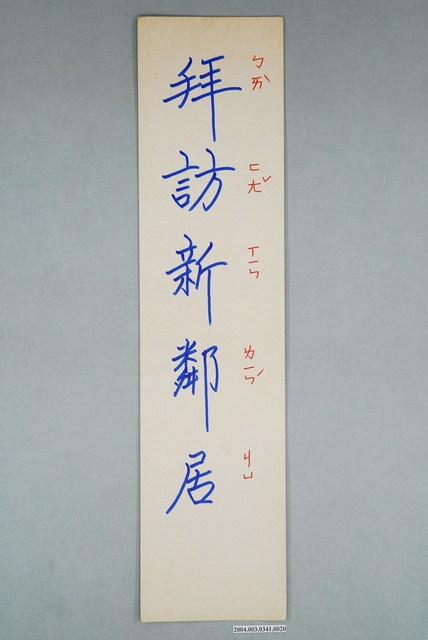 拜訪新鄰居
ㄅㄞˋ ㄈㄤˇ ㄒㄧㄣ ㄌㄧㄣˊ ㄐㄩ
2004.003.0341.0020